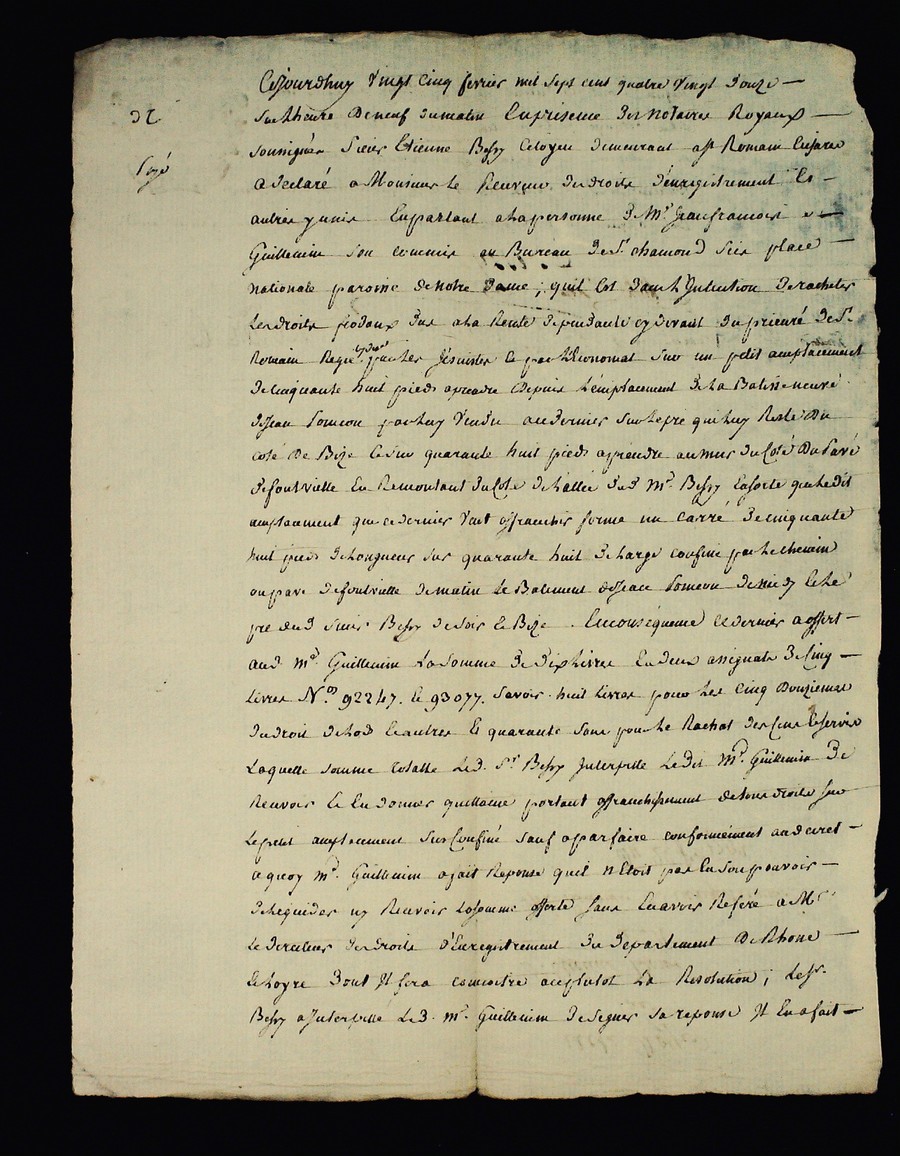 Cejourdhuy vingt cinq fevrier mil sept cent quatre vingt douze
sur lheure de neuf du matin En presence des notaires Royaux
soussignés sieur Etienne Bessy Citoyen demeurant a St Romain Enjarès
a declaré a Monsieur le Receveur des droits d'enregistrement Et
autres y unis En parlant a la personne de Mr. Jean francois
Guillemin son commis au Bureau de St. chamond sise place
nationale paroisse de notre dame ; quil Est dans L'Intention de racheter
Les droits feodaux dus a la Rente dependante cy devant du prieuré de St.
Romain par les Jésuites Et par L'Economat sur un petit amplacement
de cinquante huit pieds a prendre depuis L'emplacement de La Batisse neuve
de Jean Poncon par luy vendu au dernier sur le pre qui luy Reste du
coté de Bize Et sur quarante huit pieds a prendre au mur du Coté du Pavé
de fontvielle En Remontant du Coté de L'allée dud Mr. Bessy Ensorte que ledit
amplacement que ce dernier veut affranchir forme un Carré de cinquante
huit pieds de Longueur sur quarante huit de Large confiné par Le chemin
ou pavé de fontvielle de matin Le Batiment de Jean Poncon de midy Et Le
pre dud sieur Bessy de soir Et Bize . En conséquence ce dernier a offert
aud Mr. Guillemin La Somme de dix Livres En deux assignats de Cinq
Livres Nos 92247. Et 93077. Savoir huit Livres pour Les Cinq Douziemes
du droit de Lod Et autres Et quarante sous pour Le Rachat des Cens Et servis
Laquelle somme totalle Led. Sr. Bessy Interpelle Ledit Mr. Guillemin De
Recevoir Et En donner quittance portant affranchissement de tous droits sur
Le petit amplacement sus Confiné sauf a parfaire conformément au decret
a quoy Mr. Guillemin a fait Reponse quil n'Etoit pas En son pouvoir
de Liquider ny Recevoir La somme offerte sans En avoir Referé a Mr
Le directeur des droits d'Enregistrement du Departement de Rhone
Et Loyre dont Il fera connoitre au plutot La Resolution ; Led Sr.
Bessy a Interpellé Led. Mr. Guillemin de signer sa reponse Il En a fait